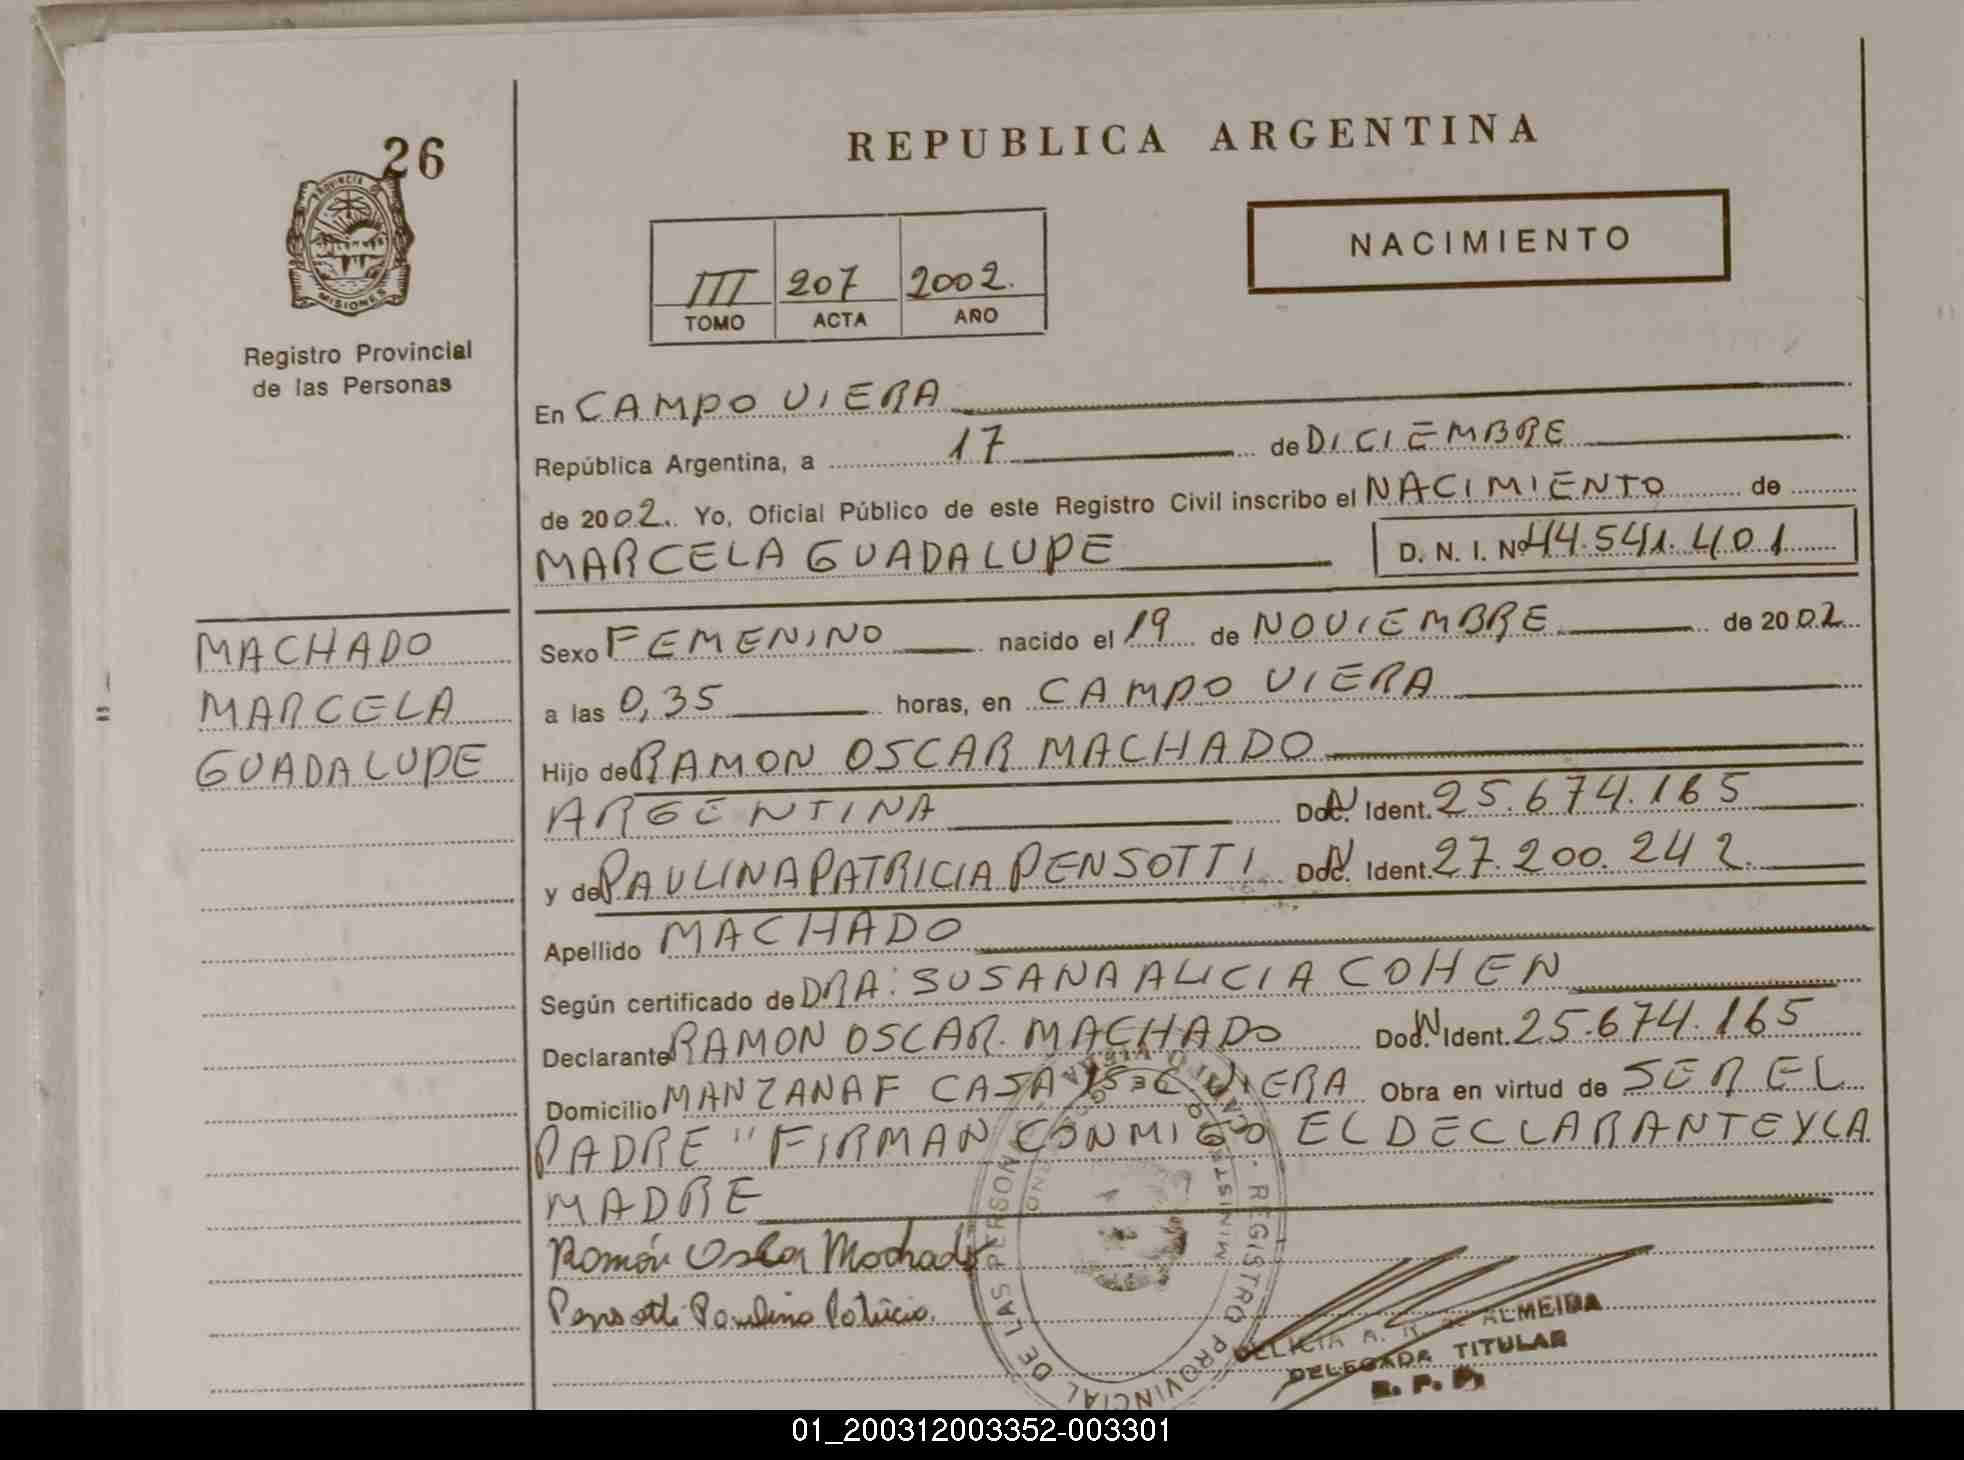 26
PROVINCIA DE
MISIONES
Registro Provincial
de las Personas
REPUBLICA ARGENTINA
NACIMIENTO
III 207 2002.
TOMO ACTA AÑO
En CAMPO VIERA
República Argentina, a 17 de DICIEMBRE
de 2002. Yo, Oficial Público de este Registro Civil inscribo el NACIMIENTO de
MARCELA GUADALUPE D. N. I. Nº 44.541.401
MACHADO
MARCELA
GUADALUPE
Sexo FEMENINO nacido el 19 de NOVIEMBRE de 2002
a las 0,35 horas, en CAMPO VIERA
Hijo de RAMON OSCAR MACHADO
ARGENTINA Doc. Ident. 25.674.165
y de PAULINA PATRICIA PENSOTTI Doc. Ident. 27.200.242
Apellido MACHADO
Según certificado de DRA: SUSANA ALICIA COHEN
Declarante RAMON OSCAR MACHADO Doc. Ident. 25.674.165
Domicilio MANZANA F CASA VIERA Obra en virtud de SER EL
PADRE " FIRMAN CONMIGO EL DECLARANTE Y LA
MADRE
Ramón Oscar Machado
Pensotti Paulina Patricia.
REGISTRO PROVINCIAL DE LAS PERSONAS
DELICIA A. R. ALMEIDA
DELEGADA TITULAR
R. P. P.
01_200312003352-003301